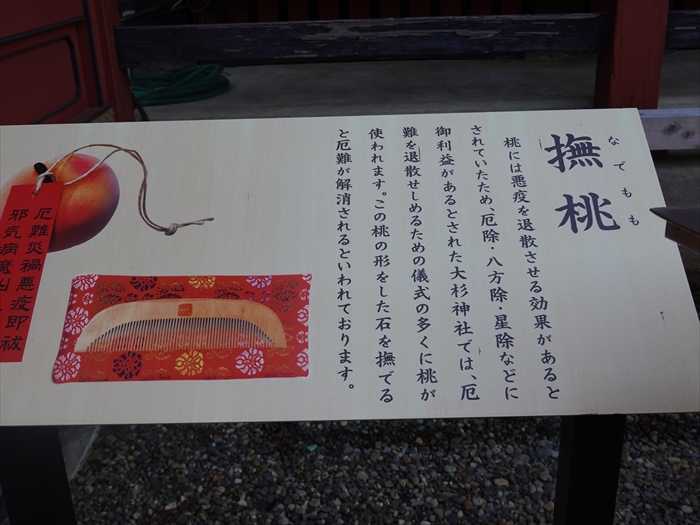 撫桃
なでもも
桃には悪疫を退散させる効果があると
されていたため、厄除・八方除・星除などに
御利益があるとされた大杉神社では、厄
難を退散せしめるための儀式の多くに桃が
使われます。この桃の形をした石を撫でる
と厄難が解消されるといわれております。
厄難災禍悪疫即祓
邪気病魔